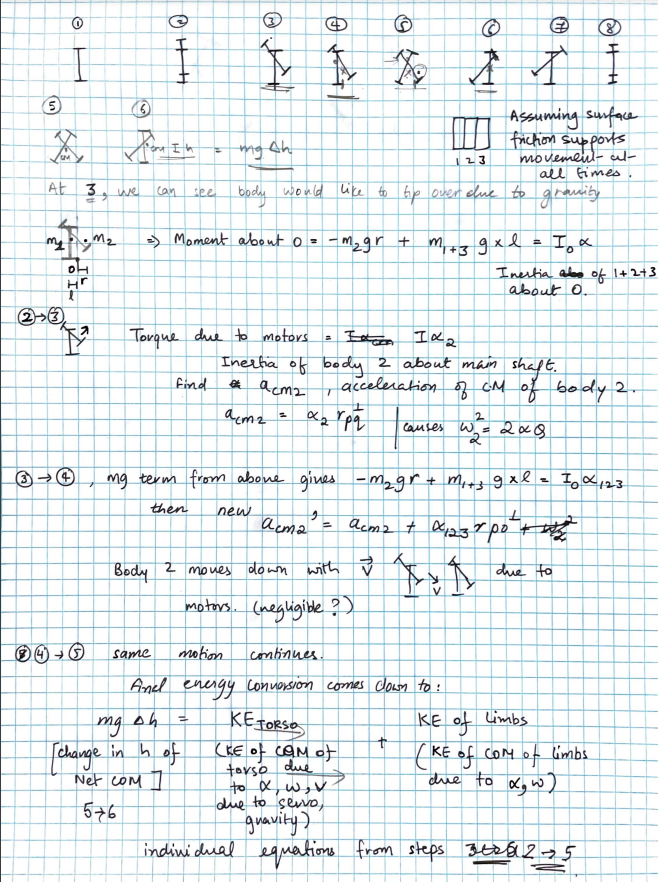 ① ② ③ ④ ⑤ ⑥ ⑦ ⑧
⑤ ⑥
CM
CM I h = mg Δh
1 2 3
Assuming surface
friction supports
movement at
all times.
At 3, we can see body would like to tip over due to gravity
m1 m2 ⇒ Moment about O = -m₂gr + m₁₊₃ g x l = I₀α
O
r
l
Inertia of 1+2+3
about O.
②→③
Torque due to motors = Iα₂
Inertia of body 2 about main shaft.
Find a_cm2, acceleration of CM of body 2.
a_cm2 = α₂ r_pq^⊥ | causes ω₂² = 2αθ
③→④, mg term from above gives -m₂gr + m₁₊₃ g x l = I₀α₁₂₃
then new a_cm2' = a_cm2 + α₁₂₃ r_po^⊥
Body 2 moves down with v⃗ v due to
motors. (negligible?)
④→⑤ same motion continues.
And energy conversion comes down to:
mg Δh = KE_TORSO + KE of Limbs
[change in h of
Net COM]
5→6
(KE of COM of
torso due
to α, ω, v
due to servo,
gravity)
(KE of COM of limbs
due to α, ω)
individual equations from steps 2→5